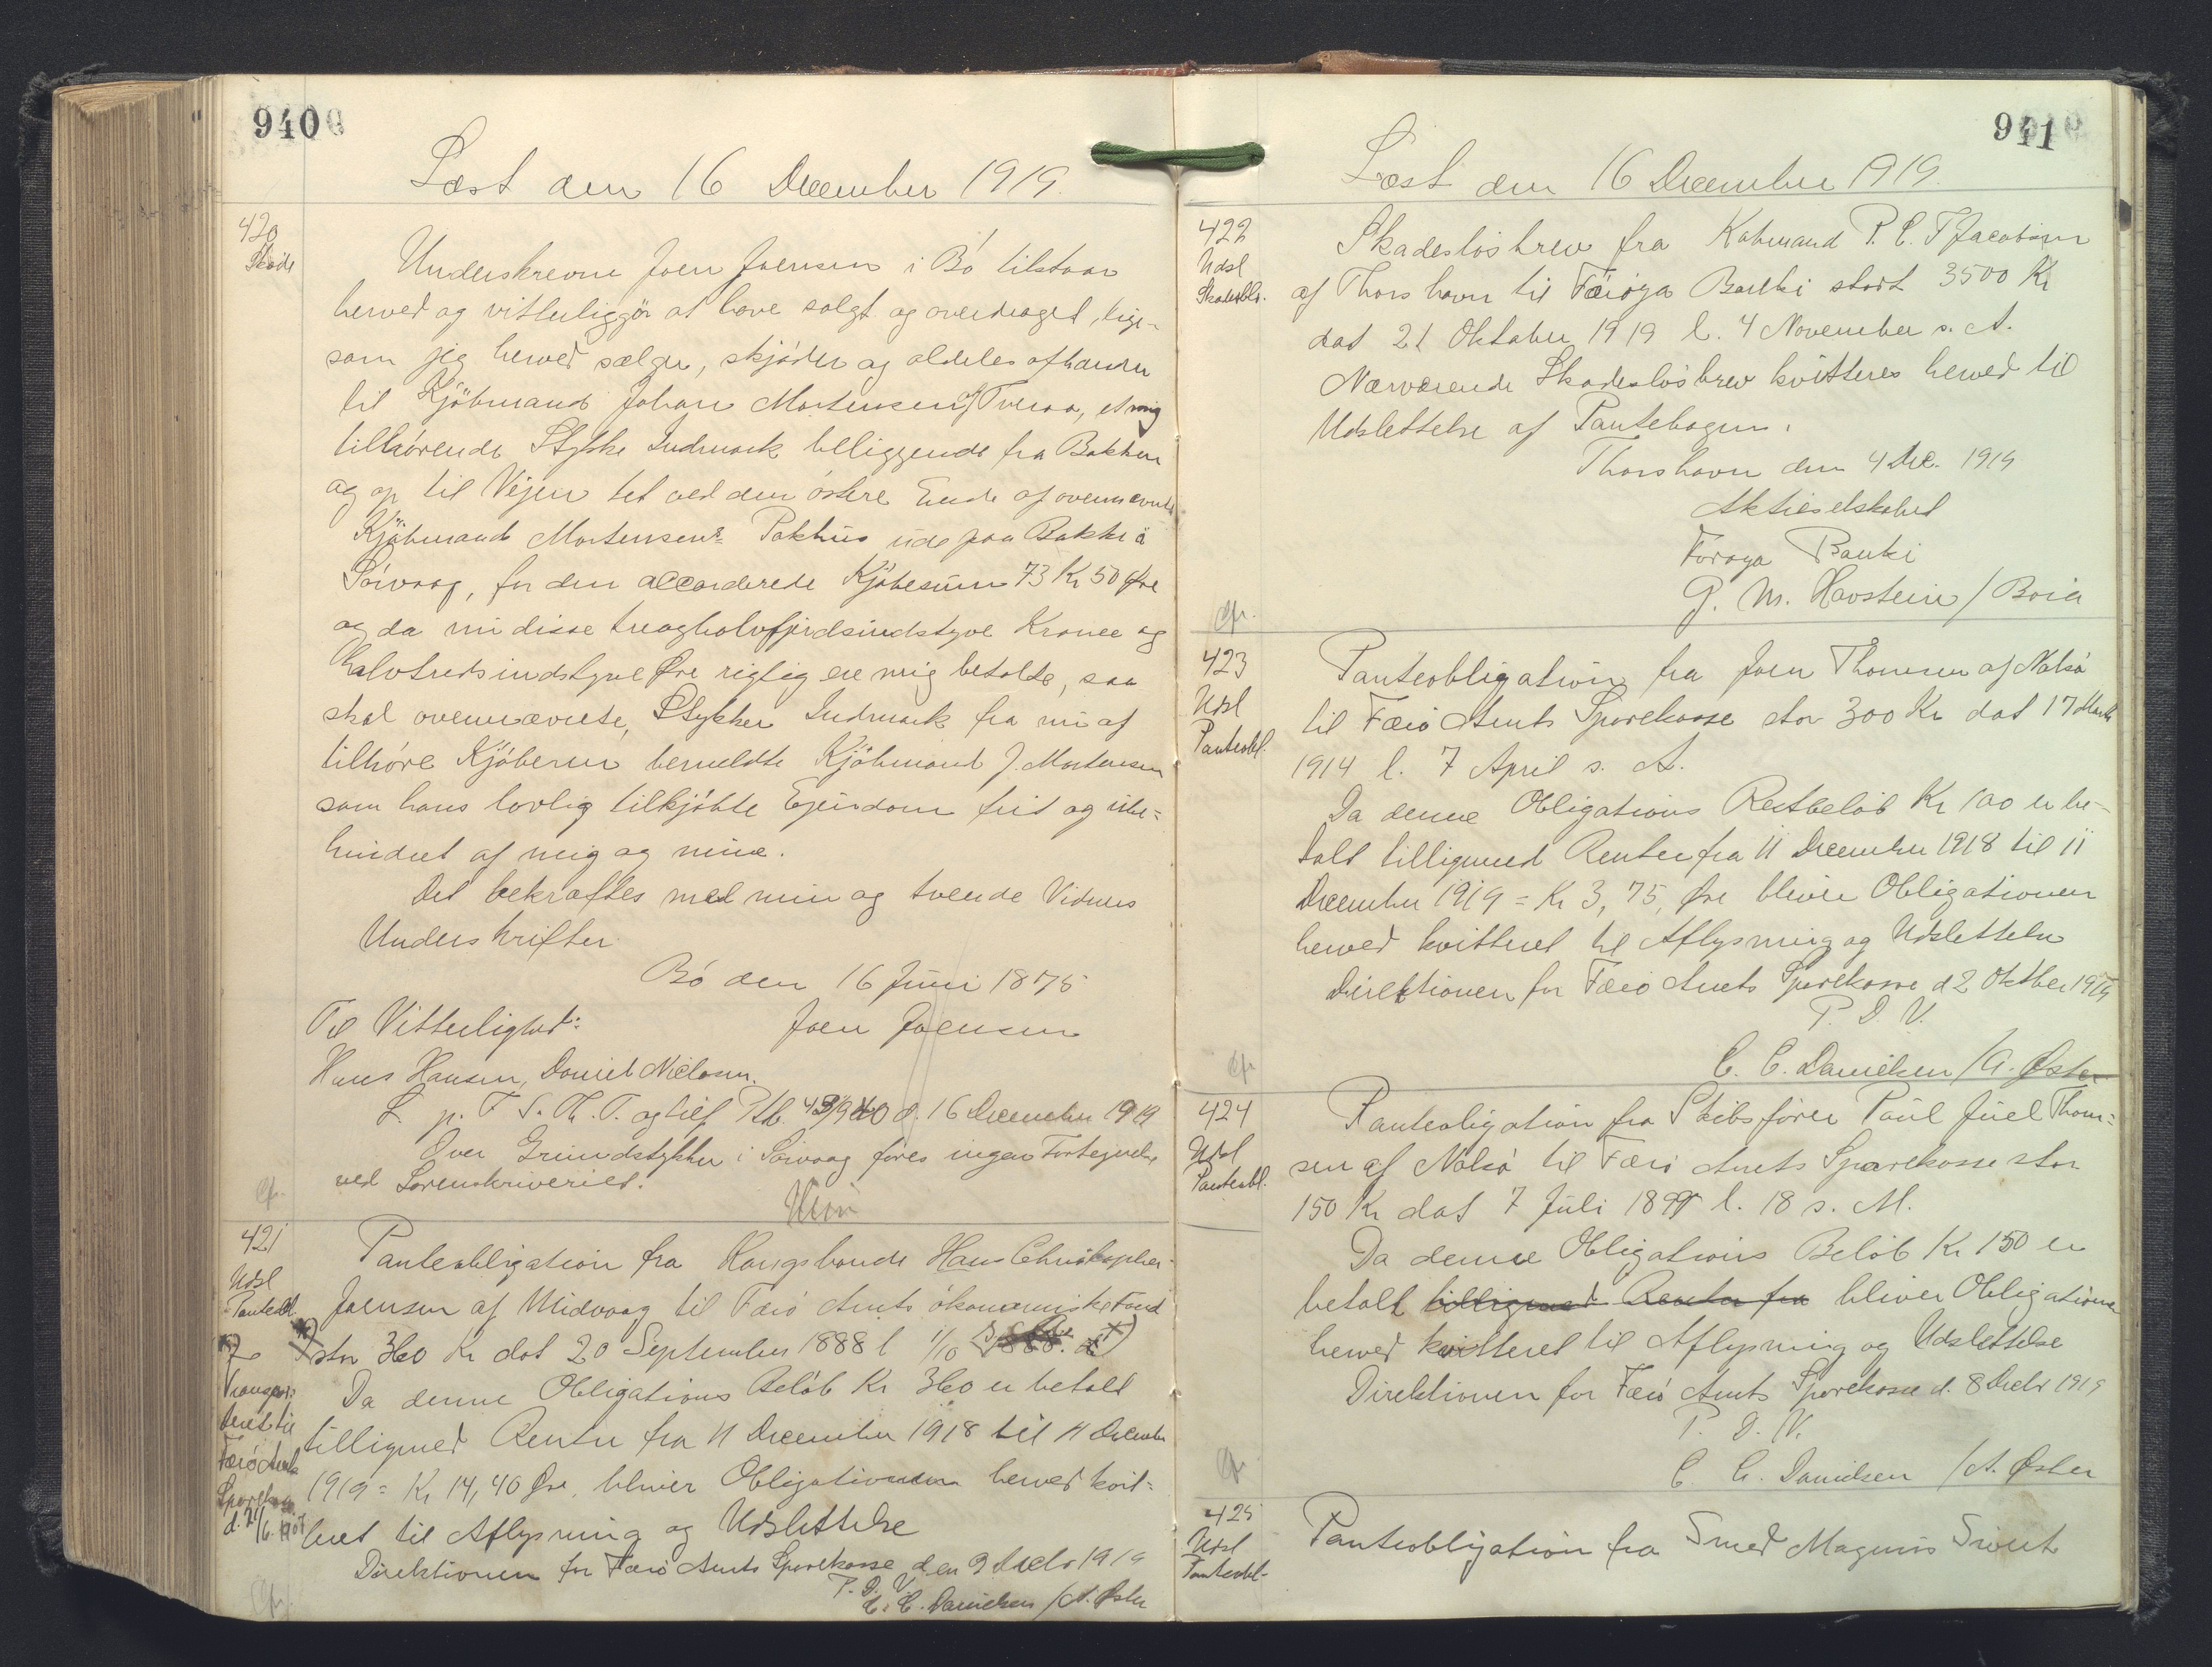 940
Læst den 16 December 1919.
420
Skøde
Underskrevne Joen Joensen i Bö tilstaar
herved og vitterliggjör at have solgt og overdraget, lige-
som jeg herved sælger, skjöder og aldeles afhænder
til Kjöbmand Johan Mortensen af Tveraa, et mig
tilhörende Stykke Indmark beliggende fra Bakken
og op til Vejen tet ved den östere Ende af ovennævnte
Kjöbmand Mortensens Pakhus ude paa Bakke i
Sörvaag, for den accorderede Kjöbesum 73 Kr 50 Øre
og da nu disse treoghalvfjerdsindstyve Kroner og
halvtredsindstyve Øre rigtig ere mig betalte, saa
skal ovennævnte, Stykker Indmark fra nu af
tilhöre Kjöberen bemeldte Kjöbmand J. Mortensen
som hans lovlig tilkjöbte Ejendom frit og ube=
hindret af mig og mine.
Det bekræftes med min og tvende Vidners
Underskrifter
Bö den 16 Juni 1875
Til Vitterlighed: Joen Joensen
Hans Hansen, Daniel Nielsen.
L. p. F. S. Th. T. og lief Ptb. 43/940 d. 16 December 1919
Over Grundstykker i Sörvaag föres ingen Fortegnelse
ved Sorenskriveriet.
Cfr.
421
Udsl
Panteobl.
Panteobligation fra Kongsbonde Hans Christopher
Joensen af Midvaag til Færö Amts ökonomiske Fond
stor 360 Kr dat 20 September 1888 l 1/10 s. A. x)
x)
Transpor-
teret til
Færö Amts
Sparekasse
d. 21/6. 1907
Da denne Obligations Belöb Kr 360 er betalt
tilligemed Renter fra 11 December 1918 til 11 December
1919 = Kr 14,40 Øre, bliver Obligationen herved kvit=
teret til Aflysning og Udslettelse
Direktionen for Færö Amts Sparekasse den 9 Decbr 1919
P. D. V.
C. C. Danielsen /A. Øster
Cfr.
941
Læst den 16 December 1919.
422
Udsl
Skadeslbr.
Skadeslösbrev fra Köbmand P. C. T Jacobsen
af Thorshavn til Færöya Banki stort 3500 Kr
dat 21 Oktober 1919 l. 4 November s. A.
Nærværende Skadeslösbrev kvitteres herved til
Udslettelse af Pantebogen.
Thorshavn den 4 Dec. 1919
Aktieselskabet
Foroya Banki
J. M. Havstein / Boia
Cfr.
423
Udsl
Panteobl.
Panteobligation fra Joen Thomsen af Nolsö
til Færö Amts Sparekasse stor 300 Kr dat 17 Marts
1914 l. 7 April s. A.
Da denne Obligations Restbelöb Kr 100 er be-
talt tilligemed Renter fra 11 December 1918 til 11
December 1919 = Kr 3,75, Øre bliver Obligationen
herved kvitteret til Aflysning og Udslettelse
Direktionen for Færö Amts Sparekasse d 2 Oktber 1919
P. D. V.
C. C. Danielsen /A. Øster
Cfr
424
Udsl
Panteobl.
Panteoligation fra Skibsförer Paul Juel Thom=
sen af Nolsö til Færö Amts Sparekasse stor
150 Kr dat 7 Juli 1899 l. 18 s. M.
Da denne Obligations Belöb Kr 150 er
betalt tilligemed Renter fra bliver Obligationen
herved kvitteret til Aflysning og Udslettelse
Direktionen for Færö Amts Sparekasse d. 8 Decbr 1919
P. D. V.
C C. Danielsen /A. Øster
Cfr
425
Udsl
Panteobl-
Panteobligation fra Smed Magnus